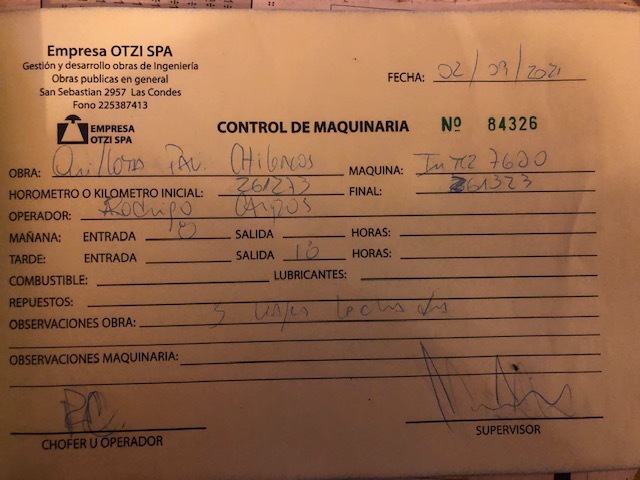 Empresa OTZI SPA
Gestión y desarrollo obras de Ingeniería
Obras publicas en general
San Sebastian 2957 Las Condes
Fono 225387413
FECHA: 02/09/2021
EMPRESA
OTZI SPA
CONTROL DE MAQUINARIA Nº 84326
OBRA: Quillota MAQUINA: 7620
HOROMETRO O KILOMETRO INICIAL: 261273 FINAL: 261323
OPERADOR: Rodrigo
MAÑANA: ENTRADA 10 SALIDA HORAS:
TARDE: ENTRADA SALIDA 16 HORAS:
COMBUSTIBLE: LUBRICANTES:
REPUESTOS:
OBSERVACIONES OBRA: 3 viajes
OBSERVACIONES MAQUINARIA:
CHOFER U OPERADOR SUPERVISOR